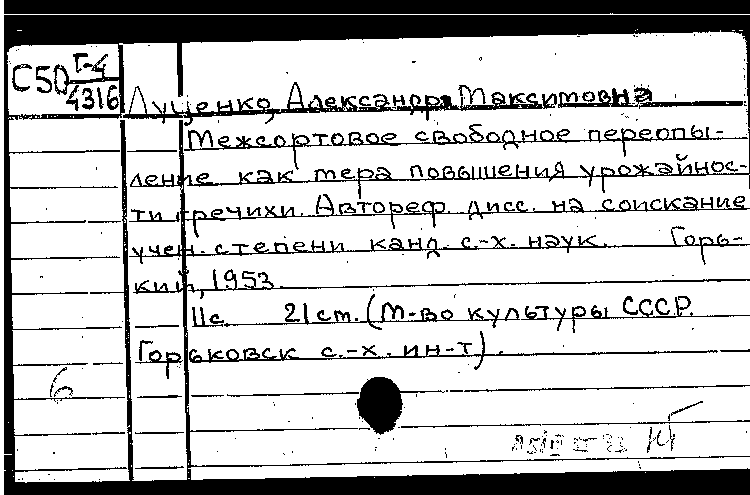 С50 Г-4
4316
Луценко, Александра Максимовна
Межсортовое свободное переопы-
ление как мера повышения урожайнос-
ти гречихи. Автореф. дисс. на соискание
учен. степени канд. с.-х. наук. Горь-
кий, 1953.
11с. 21 см. (М-во культуры СССР.
Горьковск с.-х. ин-т).
6